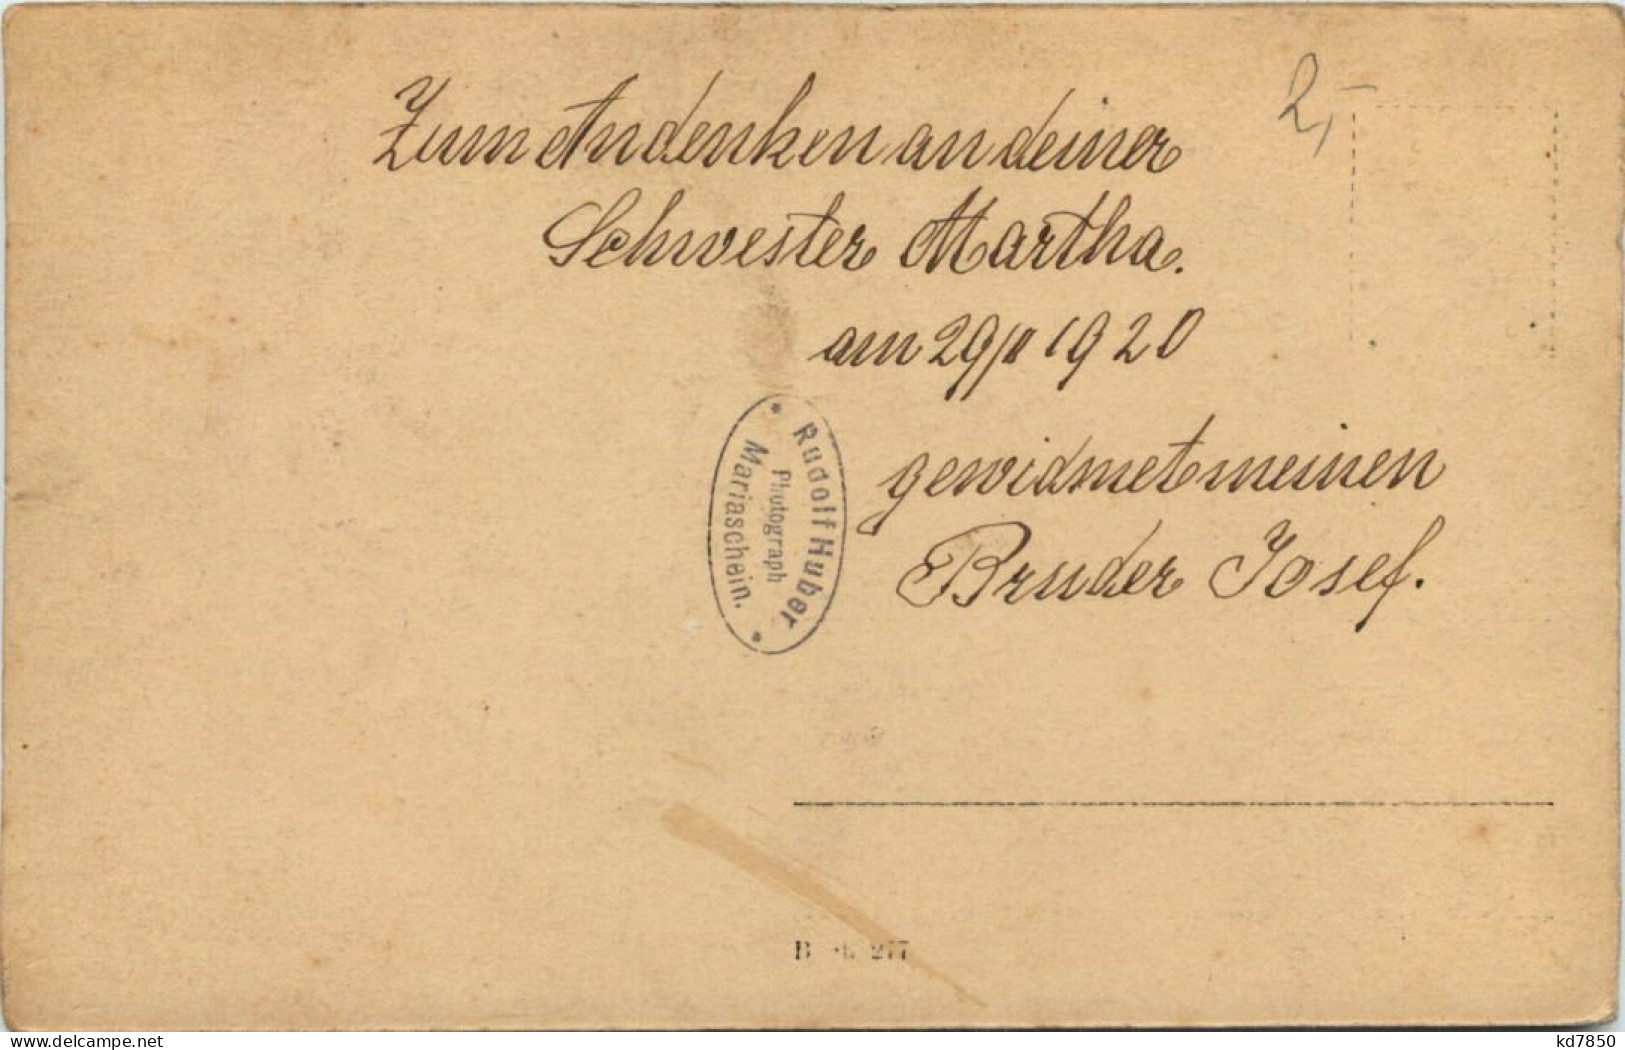 2,-
Zum Andenken an deiner
Schwester Martha.
am 29/II 1920
gewidmet meinen
Bruder Josef.
Rudolf Huber
Photograph
Mariaschein.
277
www.delcampe.net
kd7850